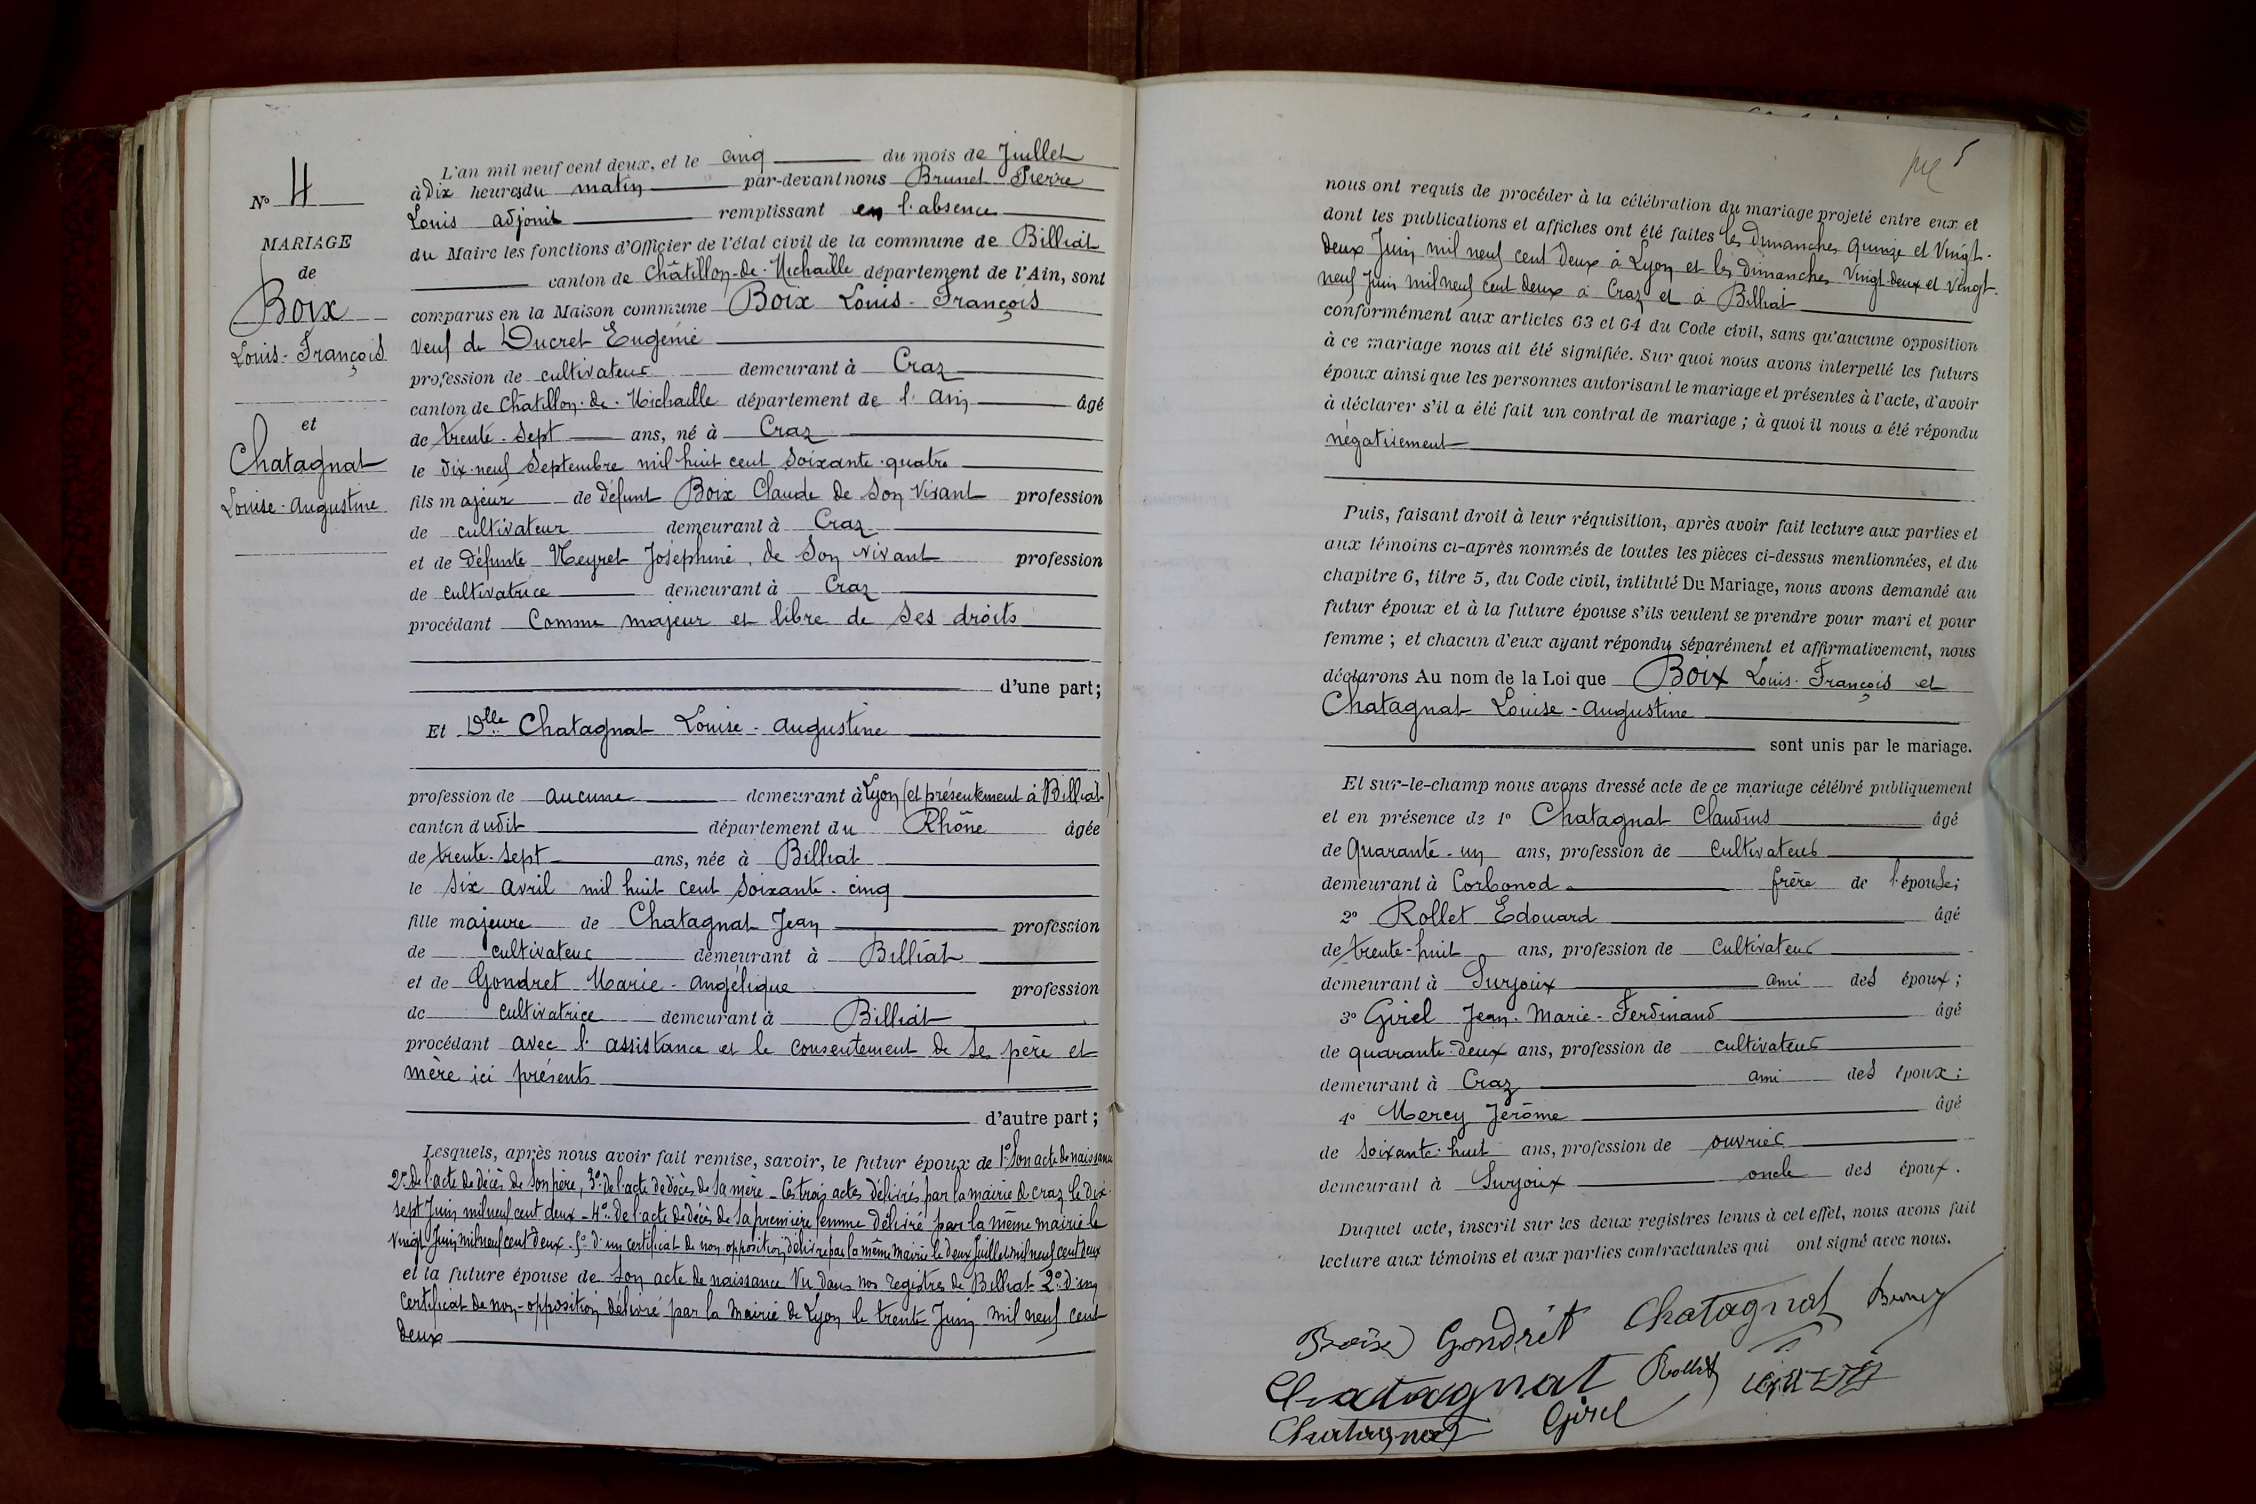 N° 4
MARIAGE
de
Boix
Louis-François
et
Chatagnat
Louise-Augustine
L'an mil neuf cent deux, et le cinq du mois de Juillet
à Dix heures du matin par-devant nous Brunet Pierre
Louis adjoint remplissant en l'absence
du Maire les fonctions d'Officier de l'état civil de la commune de Billiat
canton de Châtillon-de-Michaille département de l'Ain, sont
comparus en la Maison commune Boix Louis-François
veuf de Ducret Eugénie
profession de cultivateur demeurant à Craz
canton de Châtillon-de-Michaille département de l'Ain âgé
de trente-sept ans, né à Craz
le dix-neuf Septembre mil huit cent soixante-quatre
fils majeur de défunt Boix Claude de son vivant profession
de cultivateur demeurant à Craz
et de défunte Meyret Joséphine, de son vivant profession
de cultivatrice demeurant à Craz
procédant comme majeur et libre de ses droits
d'une part;
Et Dlle Chatagnat Louise-Augustine
profession de aucune demeurant à Lyon (et présentement à Billiat)
canton dudit département du Rhône âgée
de trente-sept ans, née à Billiat
le six avril mil huit cent soixante-cinq
fille majeure de Chatagnat Jean profession
de cultivateur demeurant à Billiat
et de Gondret Marie-Angélique profession
de cultivatrice demeurant à Billiat
procédant avec l'assistance et le consentement de ses père et
mère ici présents
d'autre part;
Lesquels, après nous avoir fait remise, savoir, le futur époux de 1° Son acte de naissance
2° De l'acte de décès de son père, 3° de l'acte de décès de sa mère - Ces trois actes délivrés par la mairie de Craz le dix-
sept Juin mil neuf cent deux - 4° De l'acte de décès de sa première femme délivré par la même mairie le
vingt Juin mil neuf cent deux. 5° d'un certificat de non opposition délivré par la même mairie le deux Juillet mil neuf cent deux
et la future épouse de Son acte de naissance Vu dans nos registres de Billiat 2° D'un
certificat de non-opposition délivré par la Mairie de Lyon le trente Juin mil neuf cent
deux
5
nous ont requis de procéder à la célébration du mariage projeté entre eux et
dont les publications et affiches ont été faites les dimanches quinze et vingt-
deux Juin mil neuf cent deux à Lyon et les dimanches vingt-deux et vingt-
neuf Juin mil neuf cent deux à Craz et à Billiat
conformément aux articles 63 et 64 du Code civil, sans qu'aucune opposition
à ce mariage nous ait été signifiée. Sur quoi nous avons interpellé les futurs
époux ainsi que les personnes autorisant le mariage et présentes à l'acte, d'avoir
à déclarer s'il a été fait un contrat de mariage; à quoi il nous a été répondu
négativement
Puis, faisant droit à leur réquisition, après avoir fait lecture aux parties et
aux témoins ci-après nommés de toutes les pièces ci-dessus mentionnées, et du
chapitre 6, titre 5, du Code civil, intitulé Du Mariage, nous avons demandé au
futur époux et à la future épouse s'ils veulent se prendre pour mari et pour
femme; et chacun d'eux ayant répondu séparément et affirmativement, nous
déclarons Au nom de la Loi que Boix Louis-François et
Chatagnat Louise-Augustine
sont unis par le mariage.
Et sur-le-champ nous avons dressé acte de ce mariage célébré publiquement
et en présence de 1° Chatagnat Claudius âgé
de Quarante-un ans, profession de cultivateur
demeurant à Corbonod frère de l'épouse;
2° Rollet Edouard âgé
de trente-huit ans, profession de cultivateur
demeurant à Surjoux ami des époux;
3° Girel Jean-Marie-Ferdinand âgé
de quarante-deux ans, profession de cultivateur
demeurant à Craz ami des époux;
4° Mercy Jérôme âgé
de soixante-huit ans, profession de ouvrier
demeurant à Surjoux oncle des époux.
Duquel acte, inscrit sur les deux registres tenus à cet effet, nous avons fait
lecture aux témoins et aux parties contractantes qui ont signé avec nous.
Gondrêt Chatagnat
Chatagnat Rollet
Chatagnat Girel